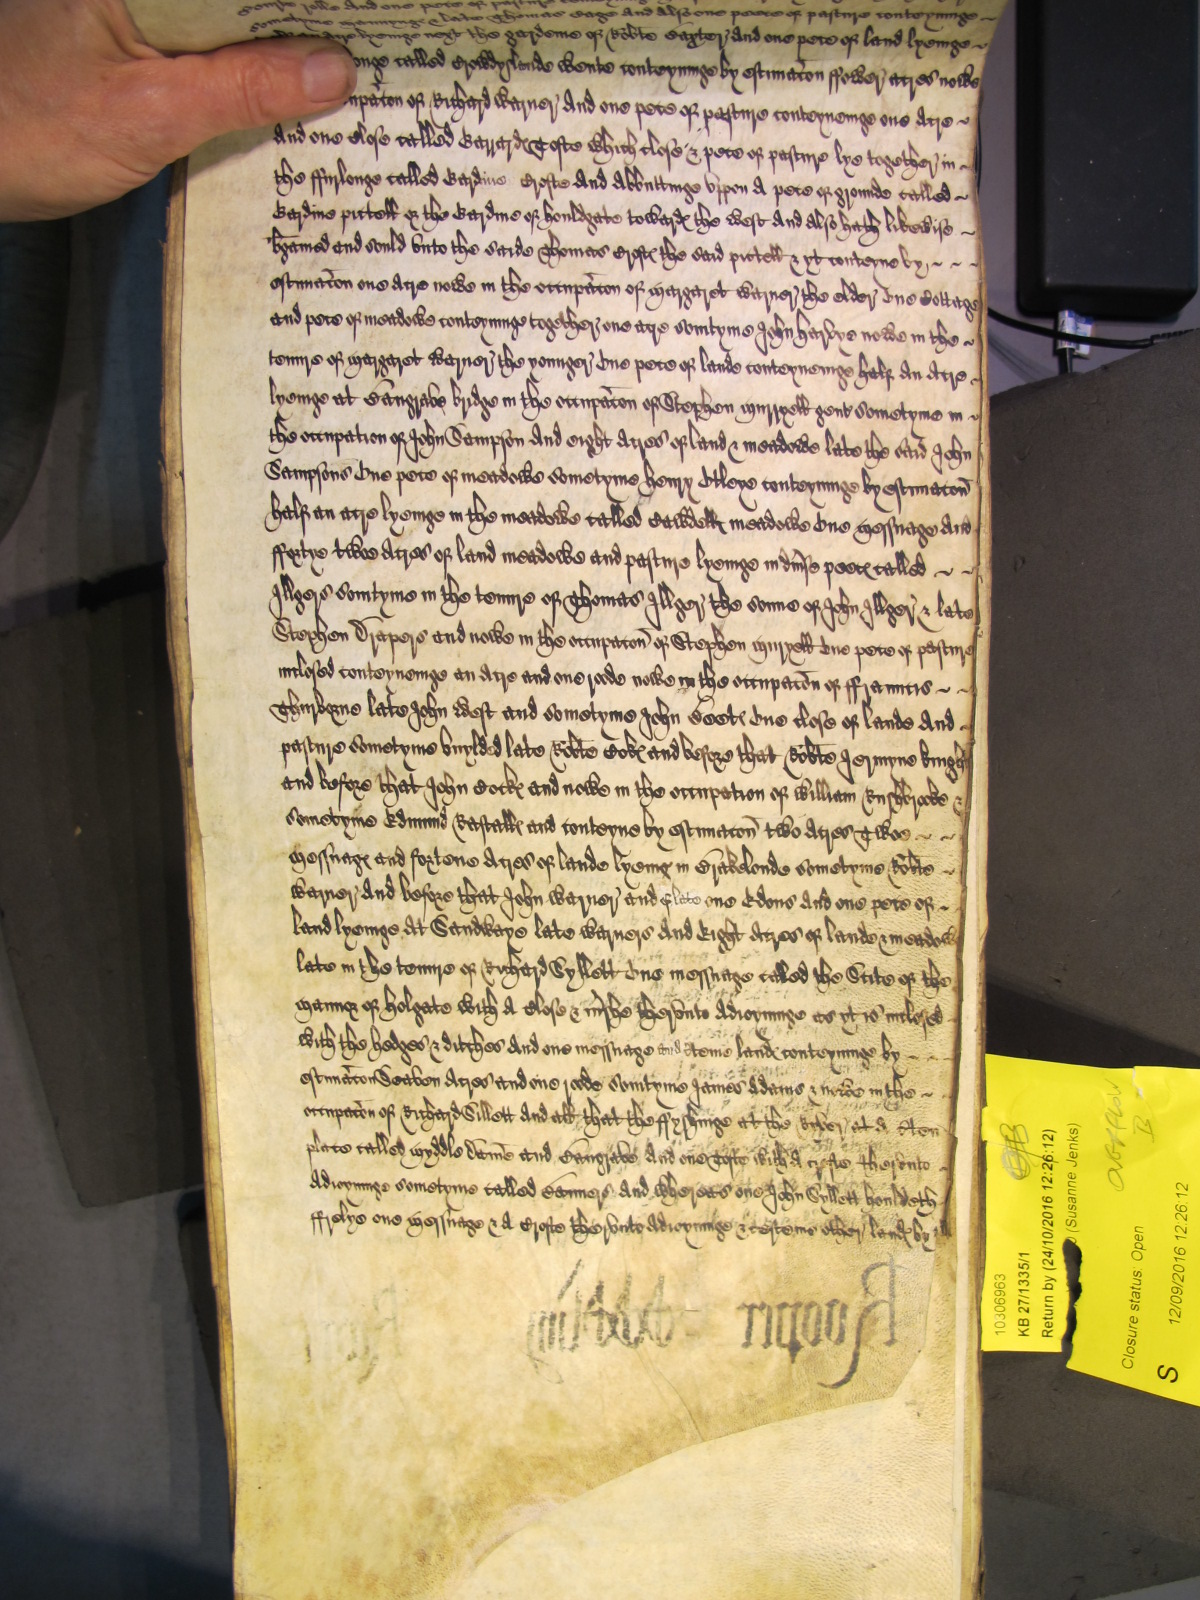 and one pece of pasture conteyninge
sometyme mannynge & late Thomas Sage and also one peece of pasture conteyninge
lyeinge next the gardeine of Robte Saxter and one pece of land lyeinge
called Crowdyslande wente conteyninge by estimacon ffower acres nowe
occupacon of Richard Warner And one pece of pasture conteyneinge one Acre
And one Close called Barrard Tofte which close & pece of pasture lye together in
the ffurlonge called Bardine Crofte And Abbuttinge vppon A pece of grounde called
Bardine pictell of the Bardine of houldgate toward the west And also hath likewise
and sould vnto the saide Thomas Croft the said pictell & yt conteyne by
estimacon one Acre nowe in the occupacon of Margaret Warner the elder One Cottage
and pece of meadowe conteyninge together one acre somtyme John harvye nowe in the
tenure of Margaret Warner the younger One pece of lande conteyneinge half An Acre
lyeinge at Sangrave bridge in the occupacon of Stephen Murryell gent sometyme in
the occupation of John Sampson And eight Acres of land & meadowe late the said John
Sampsons One pece of meadowe sometyme henry Otleye conteyninge by estimacon
half an acre lyeinge in the meadowe called meadowe One messuage And
ffortye twoe Acres of land meadowe and pasture lyeinge in divse peece called
Illgers somtyme in the tenure of Thomas Illger the sonne of John Illger & late
Stephen Drapers and nowe in the occupacon of Stephen Murryell One pece of pasture
inclosed conteyneinge an Acre and one roode nowe in the occupacon of ffrauncis
Thurborne late John West and sometyme John Coote One close of lande And
pasture sometyme buylded late Robte Cok and before that Robte Jermyne knight
and before that John Cock and nowe in the occupation of William Rushbrooke &
sometyme Edmund Rastall and conteyne by estimacon two Acres Twoe
messuag and fortene Acres of lande lyeing in Crakelonde sometyme Robte
Warner And before that John Warner and late one Edons And one pece of
land lyeinge At Sandwaye late Warners And Eight Acres of lande & meadow
late in the tenure of Richard Syllett One messuage called the Scite of the
mannor of holgate with A Close & thervnto Adioyninge as yt is inclosed
with the hedges & ditches And one messuage and certeine land conteyninge by
estimacon Seaven Acres and one roode somtyme James Adams & nowe in the
occupacon of Richard Sillett And all that the ffyshinge at the River at a
place called Myddle Dame and Sangrave And one Tofte with A crofte thervnto
Adioyninge sometyme called Cunners And whereas one John Syllett houldeth
ffrelye one messuage & A Crofte thervnto Adioyninge & certeine other land by
Roopeir
10306963
KB 27/1335/1
Return by (24/10/2016 12:26:12)
(Susanne Jenks)
Closure status: Open
S
12/09/2016 12:26:12